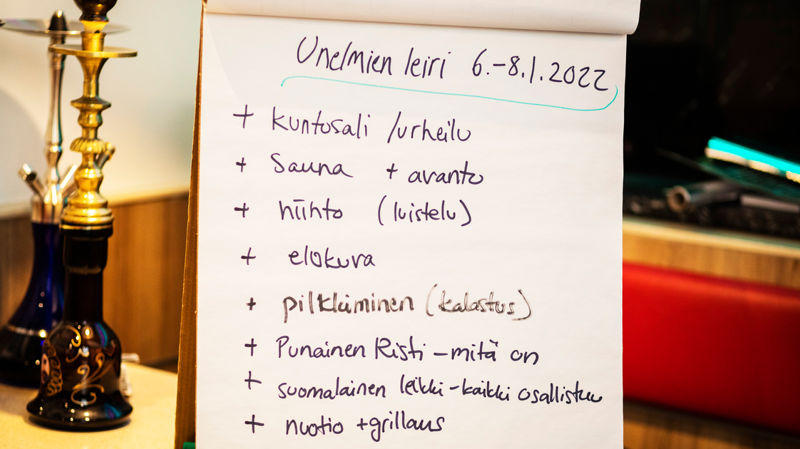 Unelmien leiri 6.-8.1.2022
+ kuntosali /urheilu
+ Sauna + avanto
+ hiihto (luistelu)
+ elokuva
+ pilkkiminen (kalastus)
+ Punainen Risti - mitä on
+ suomalainen leikki - kaikki osallistuu
+ nuotio + grillaus